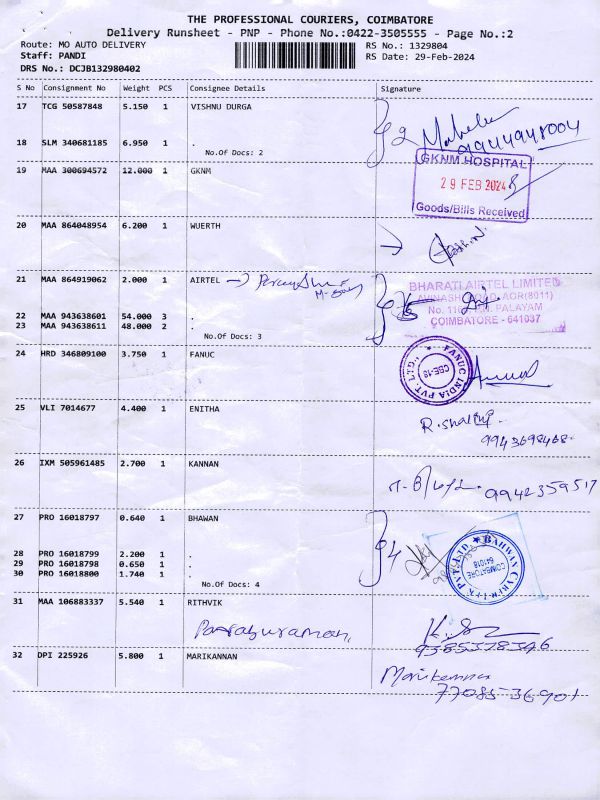 THE PROFESSIONAL COURIERS, COIMBATORE
Delivery Runsheet - PNP - Phone No.:0422-3505555 - Page No.:2
Route: MO AUTO DELIVERY RS No.: 1329804
Staff: PANDI RS Date: 29-Feb-2024
DRS No.: DCJB132980402
S No Consignment No Weight PCS Consignee Details Signature
17 TCG 50587848 5.150 1 VISHNU DURGA
18 SLM 340681185 6.950 1 .
No.Of Docs: 2
19 MAA 300694572 12.000 1 GKNM
GKNM HOSPITAL
29 FEB 2024
Goods/Bills Received
20 MAA 864048954 6.200 1 WUERTH
21 MAA 864919062 2.000 1 AIRTEL
BHARTI AIRTEL LIMITED
COIMBATORE - 641037
22 MAA 943638601 54.000 3 .
23 MAA 943638611 48.000 2 .
No.Of Docs: 3
24 HRD 346809100 3.750 1 FANUC
FANUC INDIA PVT. LTD.,
CBE-18
25 VLI 7014677 4.400 1 ENITHA
9943698468.
26 IXM 505961485 2.700 1 KANNAN
9942359517
27 PRO 16018797 0.640 1 BHAWAN
28 PRO 16018799 2.200 1 .
29 PRO 16018798 0.650 1 .
30 PRO 16018800 1.740 1 .
No.Of Docs: 4
COIMBATORE
641018
31 MAA 106883337 5.540 1 RITHVIK
Parasuraman,
9385378346
32 DPI 225926 5.800 1 MARIKANNAN
Marikannan
77085-36901